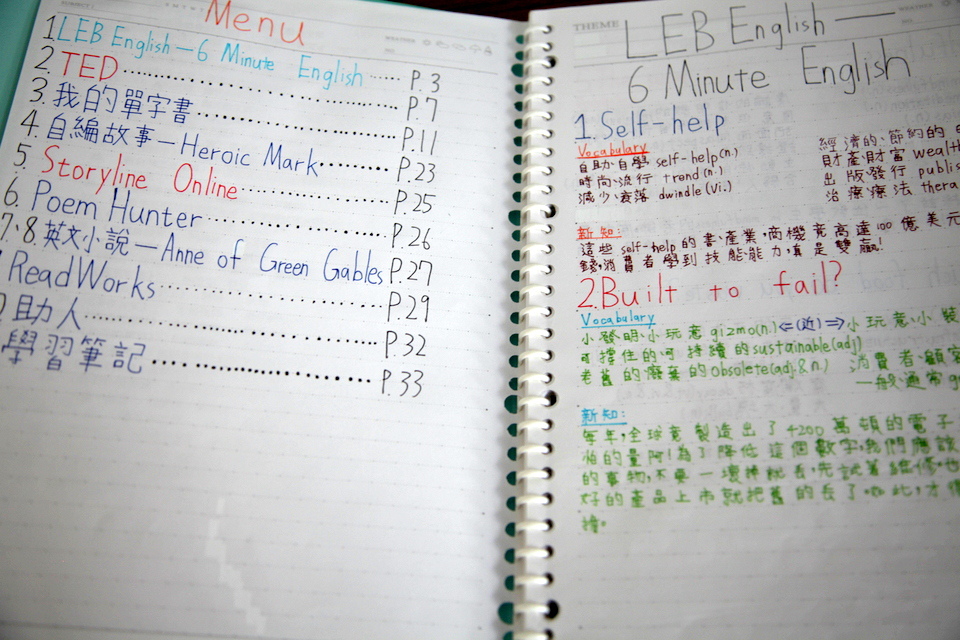 Menu
1.LEB English－6 Minute English ...... P.3
2.TED .................... P.7
3.我的單字書 .................... P.11
4.自編故事－Heroic Mark ........ P.23
5.Storyline Online .................... P.25
6.Poem Hunter .................... P.26
7、8.英文小說－Anne of Green Gables P.27
ReadWorks .................... P.29
助人 .................... P.32
學習筆記 .................... P.33
THEME
LEB English －
6 Minute English
1.Self-help
Vocabulary
自助、自學 self-help(n.) 經濟的、節約的
時尚、流行 trend(n.) 財產、財富 wealth
減少、衰落 dwindle(vi.) 出版、發行 publis
治療、療法 thera
新知:
這些 self-help 的書、產業,商機竟高達100億美元
錢,消費者學到技能、能力,真是雙贏!
2.Built to fail?
Vocabulary
小發明、小玩意 gizmo(n.) ⇐(近)⇒ 小玩意、小裝
可撐住的、可持續的 sustainable(adj)
老舊的、廢棄的 obsolete(adj.&n.) 消費者、顧客
一般、通常 ge
新知:
每年,全球竟製造出了4200萬頓的電子
怕的量阿!為了降低這個數字,我們應該
的事物,不要一壞掉就丟,先試著維修,也
好的產品上市就把舊的丟了。如此,才